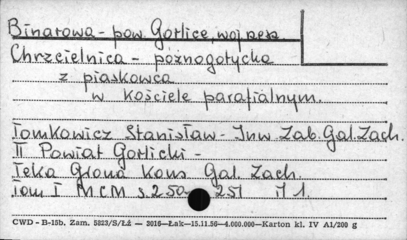 Binarowa - pow. Gorlice, woj. rzesz
Chrzcielnica - poźnogotycka
z piaskowca
w kościele parafialnym.
Tomkowicz Stanisław - Inw. Zab. Gal. Zach.
II Powiat Gorlicki -
Teka Grona Kons. Gal. Zach.
Tom I MCM s. 250 251 il 1.
CWD - B-15b. Zam. 5823/S/ŁŻ — 3016—Łak—15.11.56—4.000.000—Karton kl. IV A1/200 g